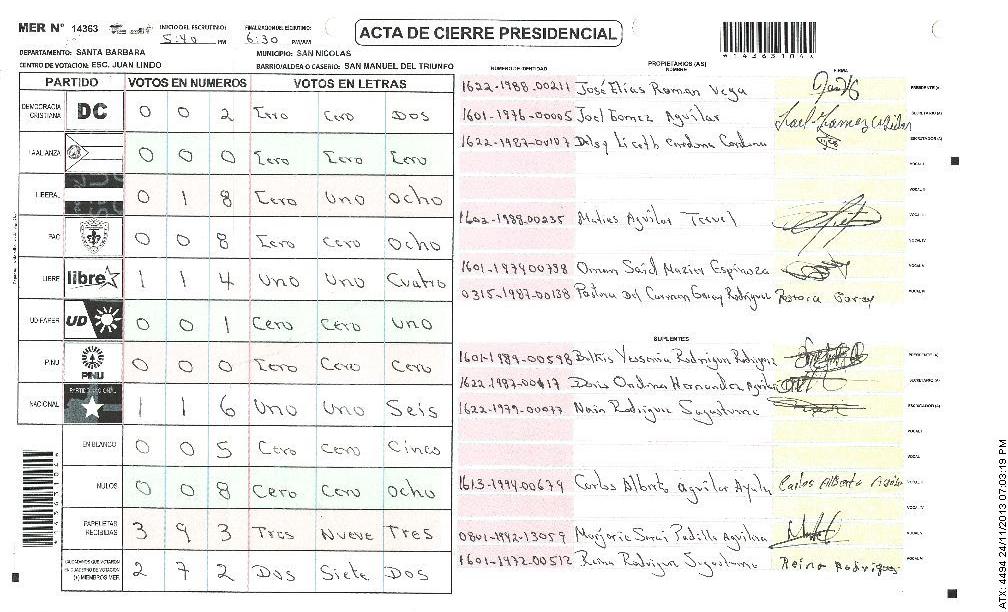 MER N° 14363 INICIO DEL ESCRUTINIO: 5:40 PM FINALIZACION DEL ESCRUTINIO: 6:30 PM/AM ACTA DE CIERRE PRESIDENCIAL
DEPARTAMENTO: SANTA BARBARA MUNICIPIO: SAN NICOLAS
CENTRO DE VOTACION: ESC. JUAN LINDO BARRIO/ALDEA O CASERIO: SAN MANUEL DEL TRIUNFO
PARTIDO VOTOS EN NUMEROS VOTOS EN LETRAS
DEMOCRACIA CRISTIANA DC 0 0 2 Cero Cero Dos
LA ALIANZA 0 0 0 Cero Cero Cero
LIBERAL 0 1 8 Cero Uno Ocho
PAC 0 0 8 Cero Cero Ocho
LIBRE libre 1 1 4 Uno Uno Cuatro
UD FAPER UD 0 0 1 Cero Cero Uno
PINU PINU 0 0 0 Cero Cero Cero
NACIONAL PARTIDO NACIONAL 1 1 6 Uno Uno Seis
EN BLANCO 0 0 5 Cero Cero Cinco
NULOS 0 0 8 Cero Cero Ocho
PAPELETAS RECIBIDAS 3 9 3 Tres Nueve Tres
CIUDADANOS QUE VOTARON EN CUADERNO DE VOTACION (+) MIEMBROS MER 2 7 2 Dos Siete Dos
NUMERO DE IDENTIDAD PROPIETARIOS (AS) NOMBRE FIRMA
1622-1988-00211 José Elias Roman Vega PRESIDENTE (A)
1601-1976-00005 Joel Gomez Aguilar SECRETARIO (A)
1622-1987-00107 Delsy Liceth Cardona Cardona ESCRUTADOR (A)
VOCAL I
VOCAL II
1602-1988-00235 Matias Aguilar VOCAL III
VOCAL IV
1601-1974-00798 Oman Said Espinoza VOCAL V
0315-1987-00138 Del Carmen Garay Rodriguez VOCAL VI
SUPLENTES
1601-1989-00598 Yessenia Rodriguez Rodriguez PRESIDENTE (A)
1622-1987-00417 Doris Ondina Hernandez Aguilar SECRETARIO (A)
1622-1979-00077 Rodriguez Sagastume ESCRUTADOR (A)
VOCAL I
VOCAL
1613-1994-00679 Carlos Alberto Aguilar Ayala Carlos Alberto VOCAL
VOCAL IV
0801-1992-13059 Marjorie Sarai Padilla Aguilera VOCAL V
1601-1972-00512 Reina Rodriguez Sagastume Reina Rodriguez VOCAL VI
ATX: 4494 24/11/2013 07:03:19 PM